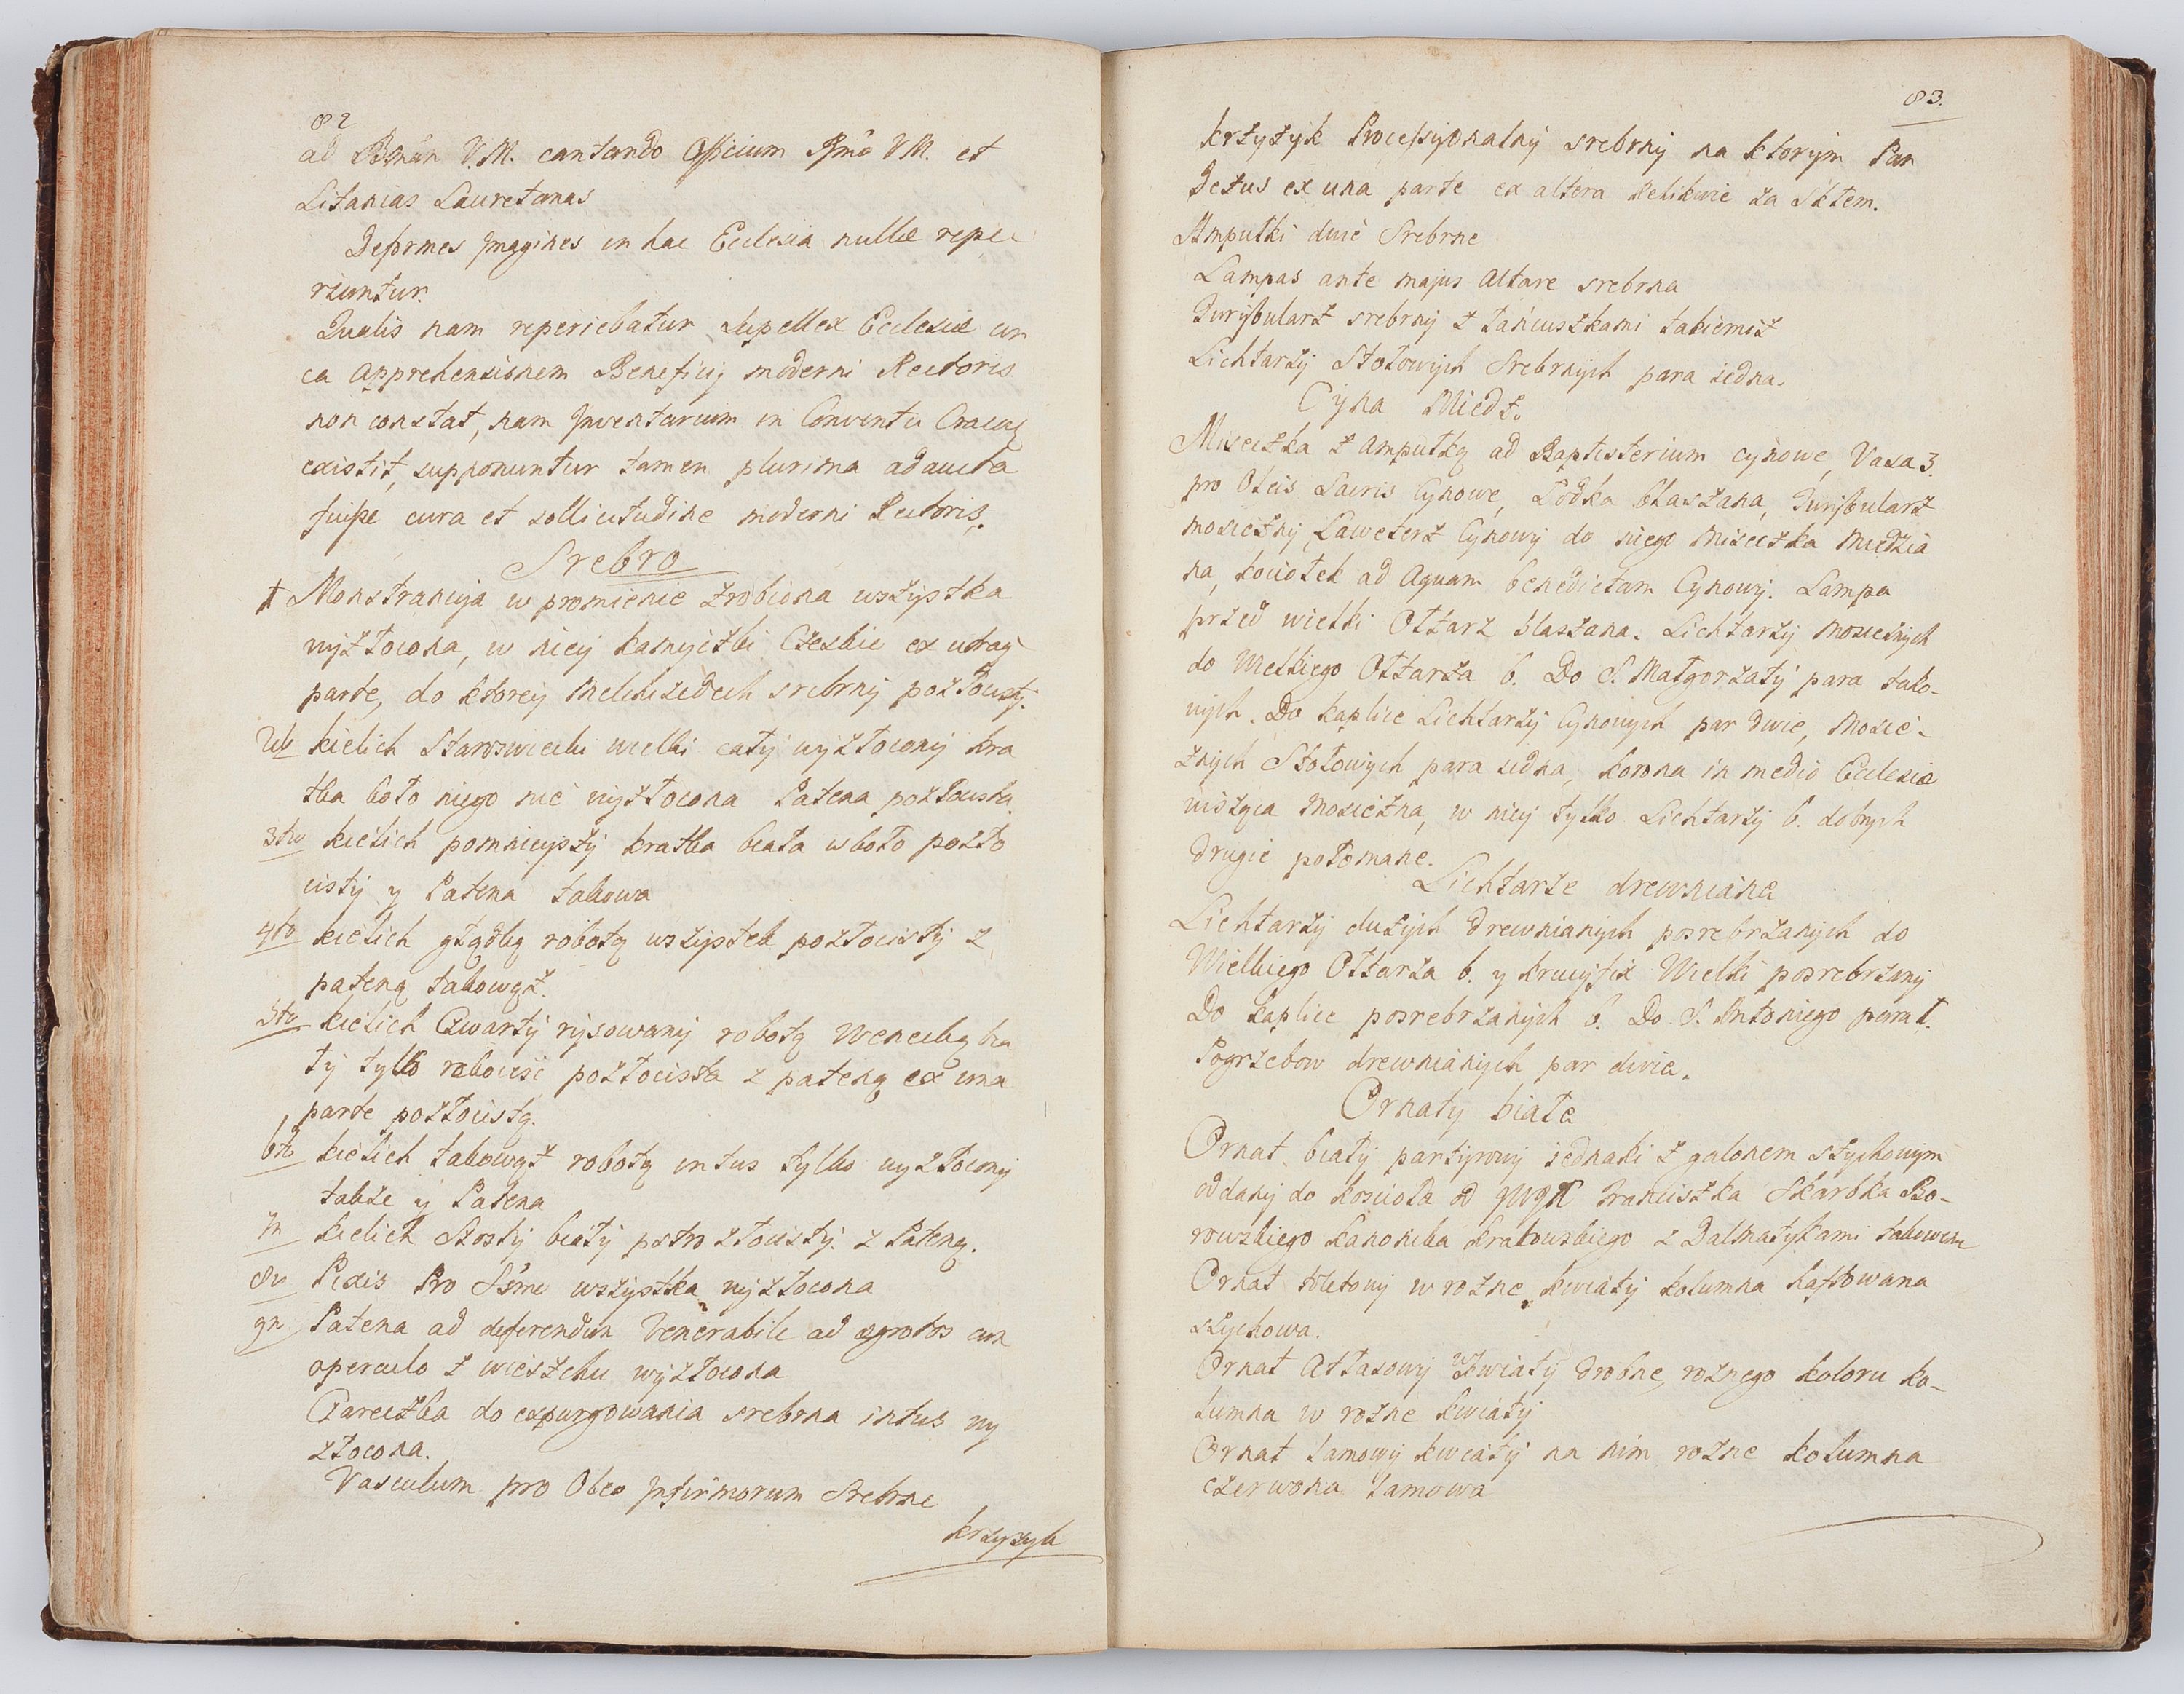 82
ad Bmam V.M. cantando Officium Bmæ VM. et
Litanias Lauretanas
Deformes Imagines in hac Ecclesia nullæ repe
riuntur.
Qualis nam reperiebatur Supellex Ecclesiæ cir
ca apprehensionem Beneficij moderni Rectoris
non constat, nam Inventarium in Conventu
existit, supponuntur tamen plurima adaucta
fuisse cura et sollicitudine moderni Rectoris.
Srebro
1 Monstrancyja w promienie zrobiona wszystka
wyzłocona, w niey kamyiczki Czeskie ex utraq
parte, do ktorey Melchizedech srebrny pozłocisty.
2do kielich Staroswiecki wielki cały wyzłocony kra
tka koło niego nie wyzłocona Patena pozłocista
3tio kielich pomnieyszy kratka biała wkoło pozło
cisty y Patena takowa
4to kielich gładką robotą wszystek pozłocisty z
pateną takowąż.
5to kielich Czwarty rysowany robotą Wenecką bia
ły tylko pozłocista z pateną ex una
parte pozłocistą.
6to kielich takowąż robotą intus tylko wyzłocony
także y Patena
7m kielich Szosty biały pstro złocisty z Pateną.
8v Pixis Pro Ssmo wszystka wyzłocona
9n Patena ad deferendum Venerabile ad ægrotos cum
operculo z wierzchu wyzłocona
Czareczka do expurgowania srebrna intus wy
złocona.
Vasculum pro Oleo Infirmorum Srebrne
krzyzyk
83.
krzyzyk Processyjonalny srebrny na ktorym Pan
Jezus ex una parte ex altera Relikwie za Skłem.
Ampułki dwie Srebrne
Lampas ante majus Altare srebrna
Turybularz srebrny z łańcuszkami takiemiż
Lichtarzy Stołowych Srebrnych para iedna.
Cyna Miedź.
Miseczka z Ampułką ad Baptisterium cynowe, Vasa 3
pro Oleis Sacris Cynowe, Łodka blaszana, Turybularz
mosiężny, Laweterz Cynowy do niego Miseczka Miedzia
na, kociołek ad Aquam benedictam Cynowy. Lampa
przed wielki Ołtarz blaszana. Lichtarzy Mosieżnych
do Wielkiego Ołtarza 6. Do S. Małgorzaty para tako-
wych. Do kaplice Lichtarzy Cynowych par dwie, Mosię-
żnych Stołowych para iedna, korona in medio Ecclesiæ
wisząca Mosiężna, w niey tylko Lichtarzy 6. dobrych
drugie połomane.
Lichtarze drewniane
Lichtarzy dużych Drewnianych posrebrzanych do
Wielkiego Ołtarza 6. y krucyfix Wielki posrebrzany
Do kaplice posrebrzanych 6. Do S. Antoniego para 1.
Pogrzebow drewnianych par dwie.
Ornaty białe
Ornat biały partyrowy iednaki z galonem szychowym
oddany do kościoła od Franciszka Skarbka Bo-
rowskiego kanonika krakowskiego z Dalmatykami takowemi
Ornat toletowy w rozne kwiaty kolumna haftowana
szychowa.
Ornat Atłasowy w kwiaty drobne, roznego koloru ko-
lumna w rozne kwiaty
Ornat Lamowy kwiaty na nim rozne kolumna
czerwona Lamowa